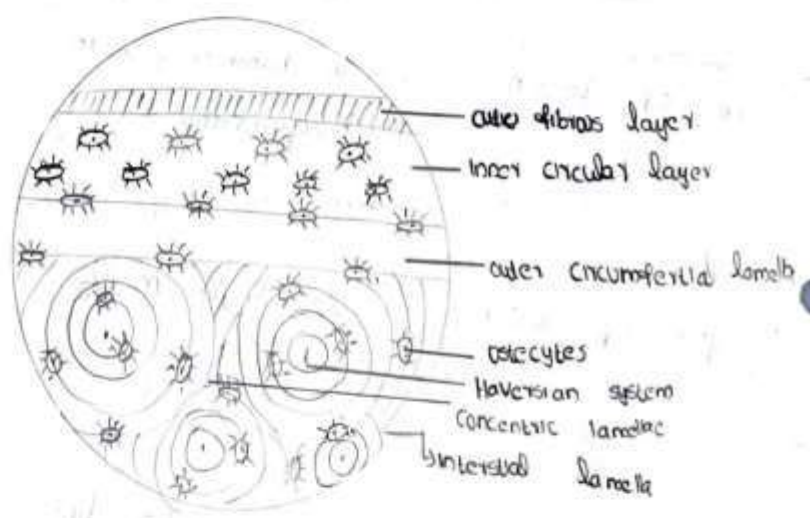 outer fibrous layer.
inner circular layer
outer circumfertial lamella
ostecytes
Haversian system
Concentric lamellae
interstial lamella